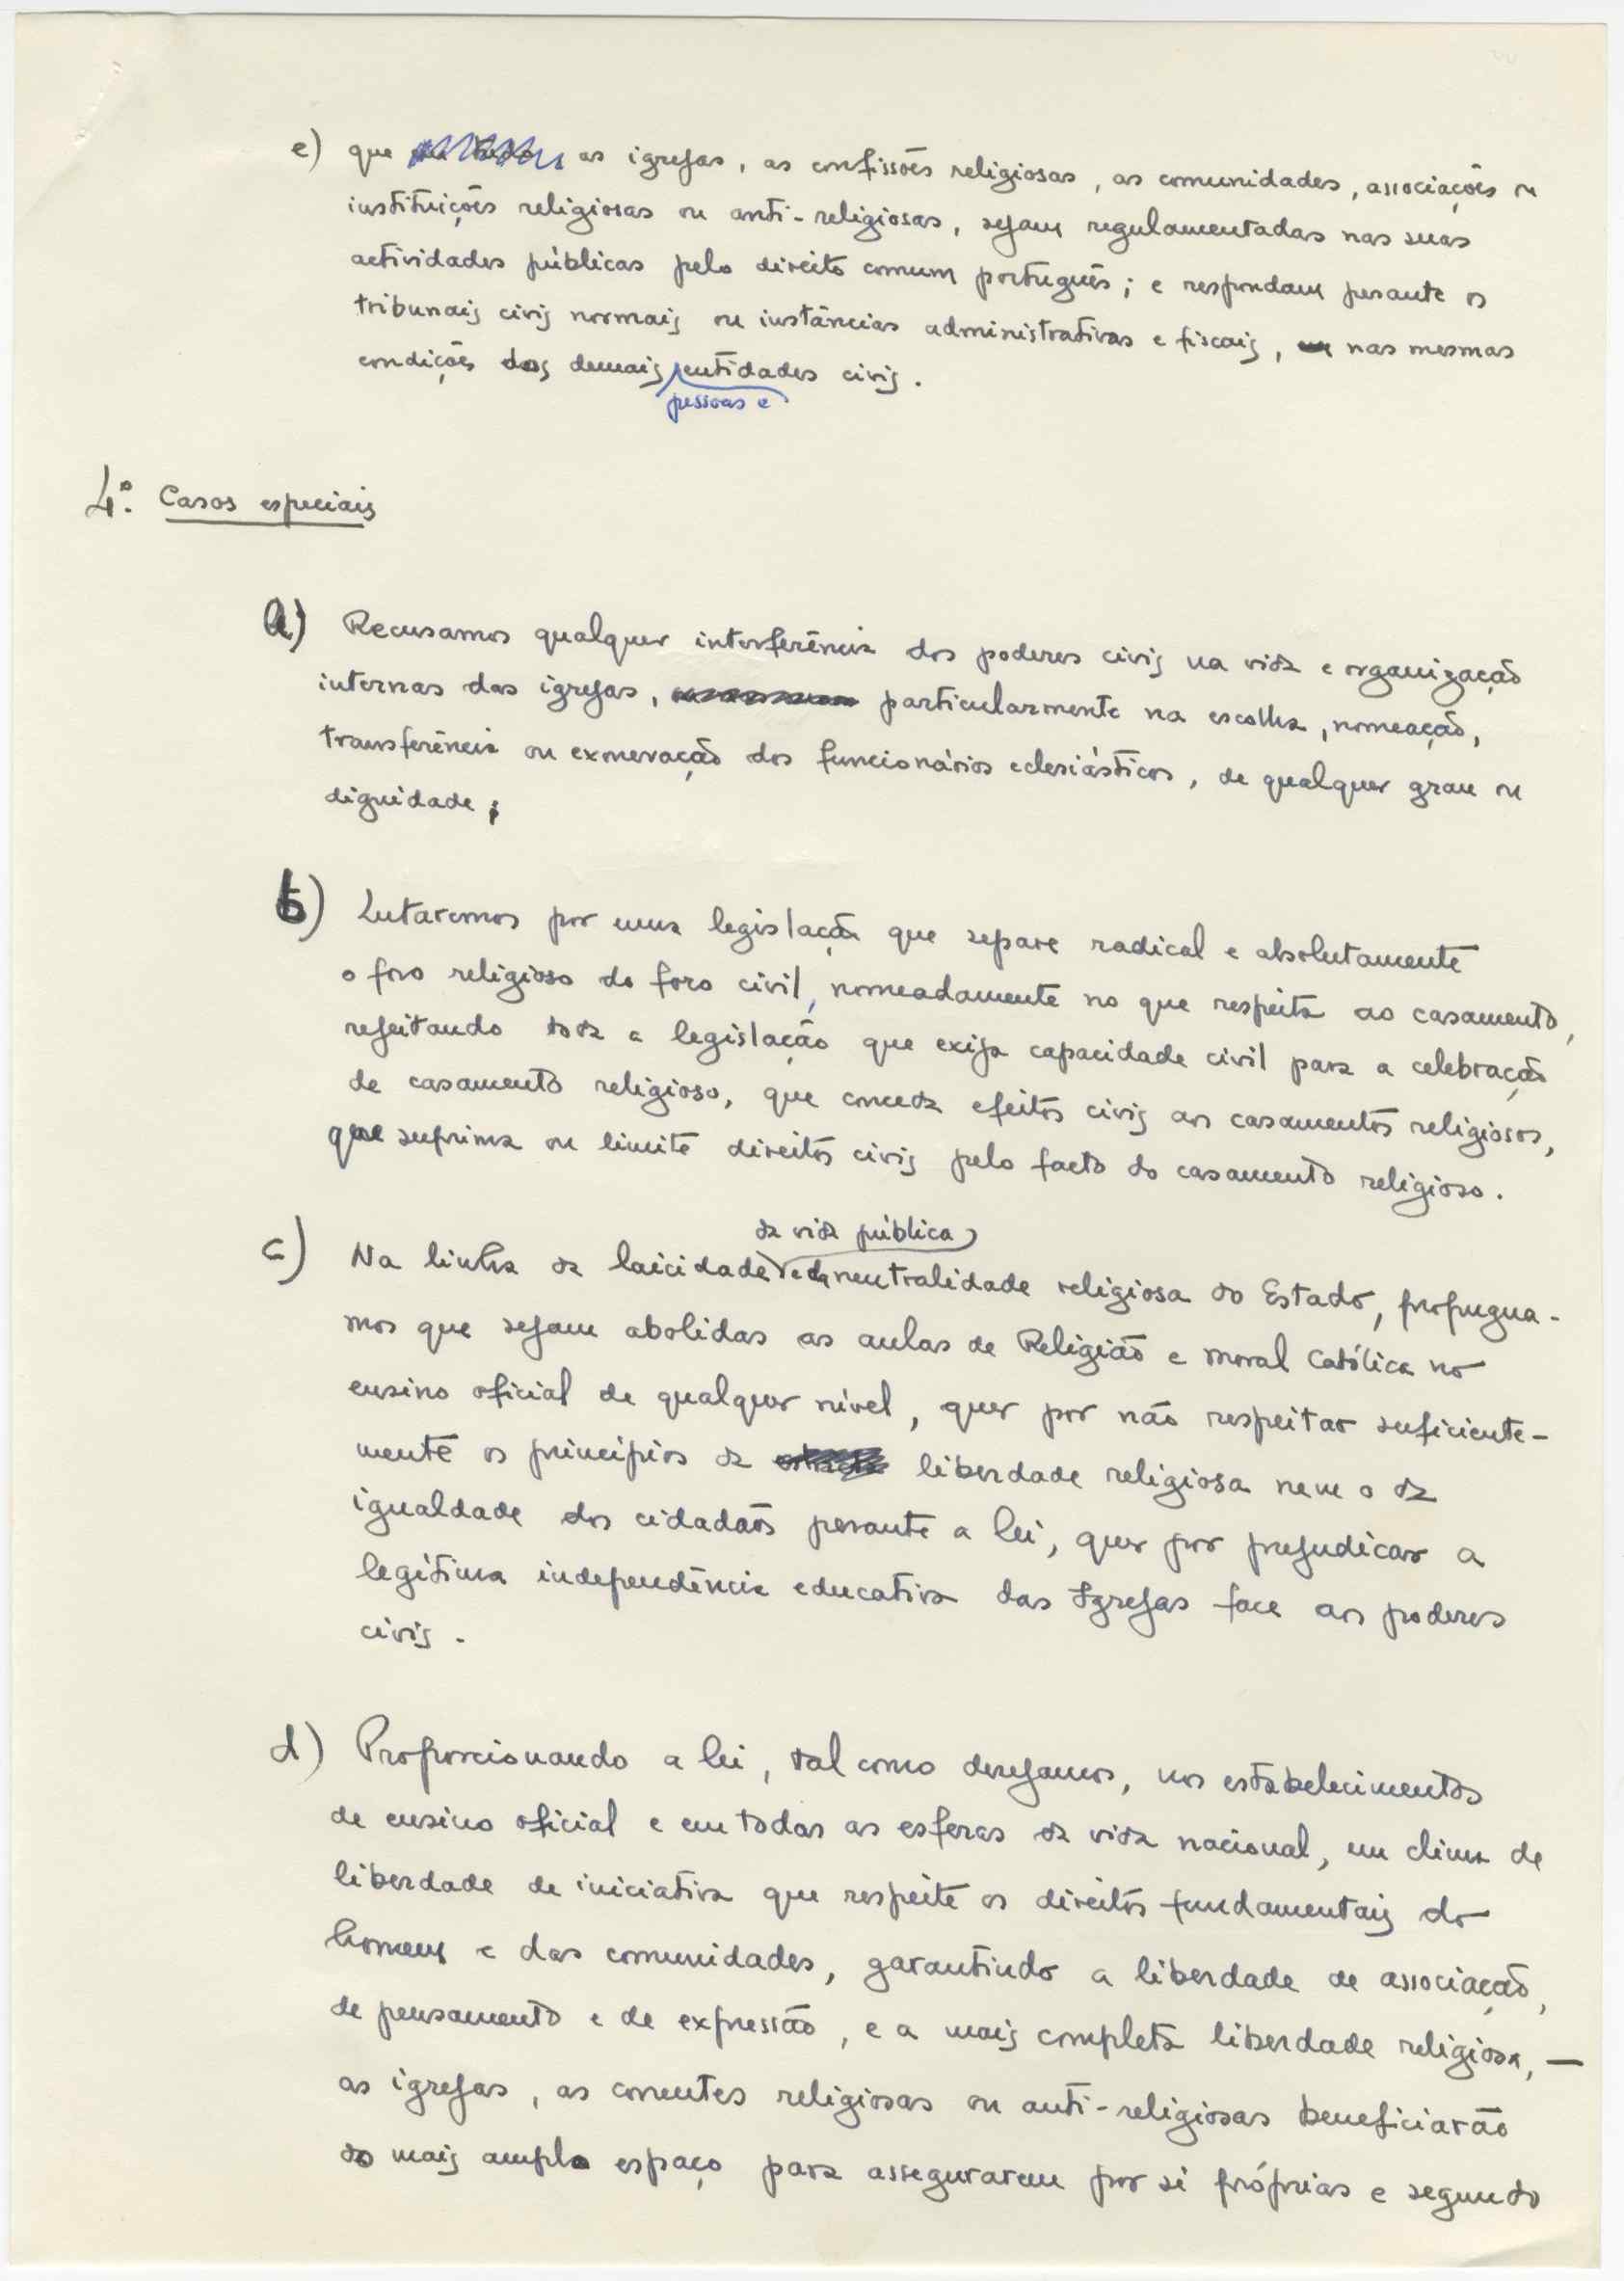 e) que as igrejas, as confissões religiosas, as comunidades, associações ou
instituições religiosas ou anti-religiosas, sejam regulamentadas nas suas
actividades públicas pelo direito comum português; e respondam perante os
tribunais civis normais ou instâncias administrativas e fiscais, nas mesmas
condições das demais pessoas e entidades civis.
4.º Casos especiais
a) Recusamos qualquer interferência dos poderes civis na vida e organização
internas das igrejas, particularmente na escolha, nomeação,
transferência ou exoneração dos funcionários eclesiásticos, de qualquer grau ou
dignidade;
b) Lutaremos por uma legislação que separe radical e absolutamente
o foro religioso do foro civil, nomeadamente no que respeita ao casamento,
rejeitando toda a legislação que exija capacidade civil para a celebração
de casamento religioso, que conceda efeitos civis aos casamentos religiosos,
que suprima ou limite direitos civis pelo facto do casamento religioso.
c) Na linha da laicidade da vida pública e da neutralidade religiosa do Estado, propugna-
mos que sejam abolidas as aulas de Religião e Moral Católica no
ensino oficial de qualquer nível, quer por não respeitar suficiente-
mente os princípios da liberdade religiosa nem o da
igualdade dos cidadãos perante a lei, quer por prejudicar a
legítima independência educativa das Igrejas face aos poderes
civis.
d) Proporcionando a lei, tal como desejamos, nos estabelecimentos
de ensino oficial e em todas as esferas da vida nacional, um clima de
liberdade de iniciativa que respeite os direitos fundamentais do
homem e das comunidades, garantindo a liberdade de associação,
de pensamento e de expressão, e a mais completa liberdade religiosa, —
as igrejas, as correntes religiosas ou anti-religiosas beneficiarão
do mais amplo espaço para assegurarem por si próprias e segundo